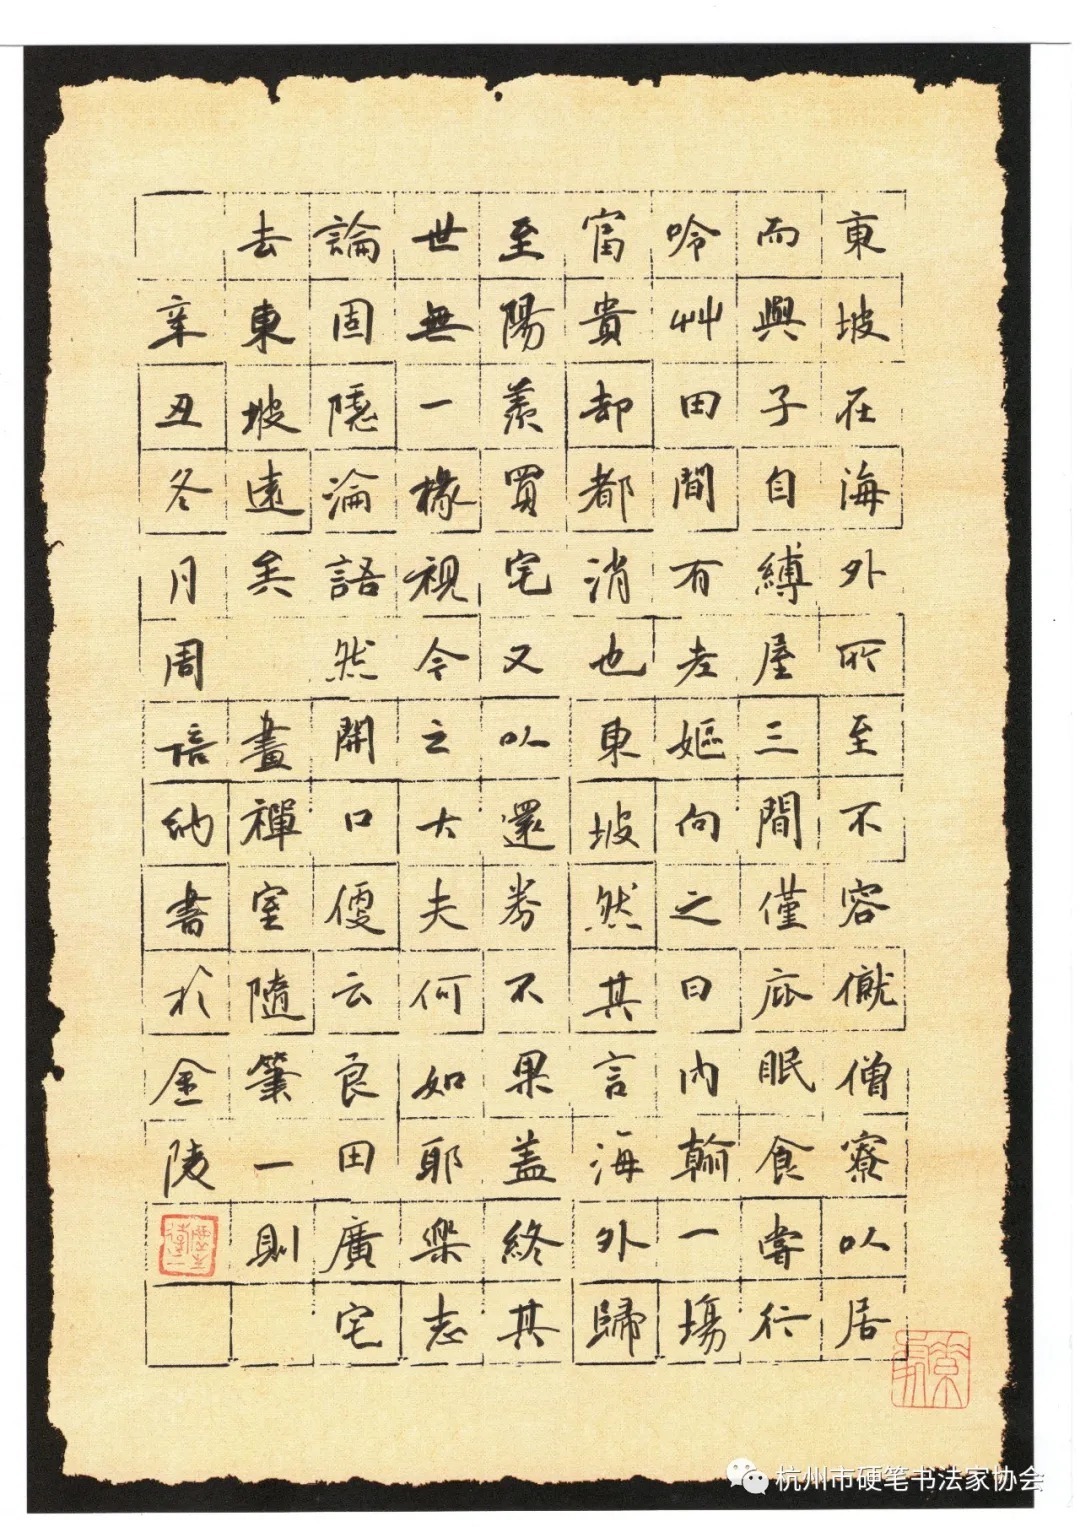 東坡在海外所至不容僦僧寮以居
而與子自縛屋三間僅庇眠食嘗行
吟艸田間有老嫗向之曰內翰一場
富貴却都消也東坡然其言海外歸
至陽羨買宅又以還券不果蓋終其
世無一椽視今之大夫何如耶樂志
論固隱淪語然開口便云良田廣宅
去東坡遠矣 畫禪室隨筆一則
辛丑冬月周納書於金陵
杭州市硬笔书法家协会